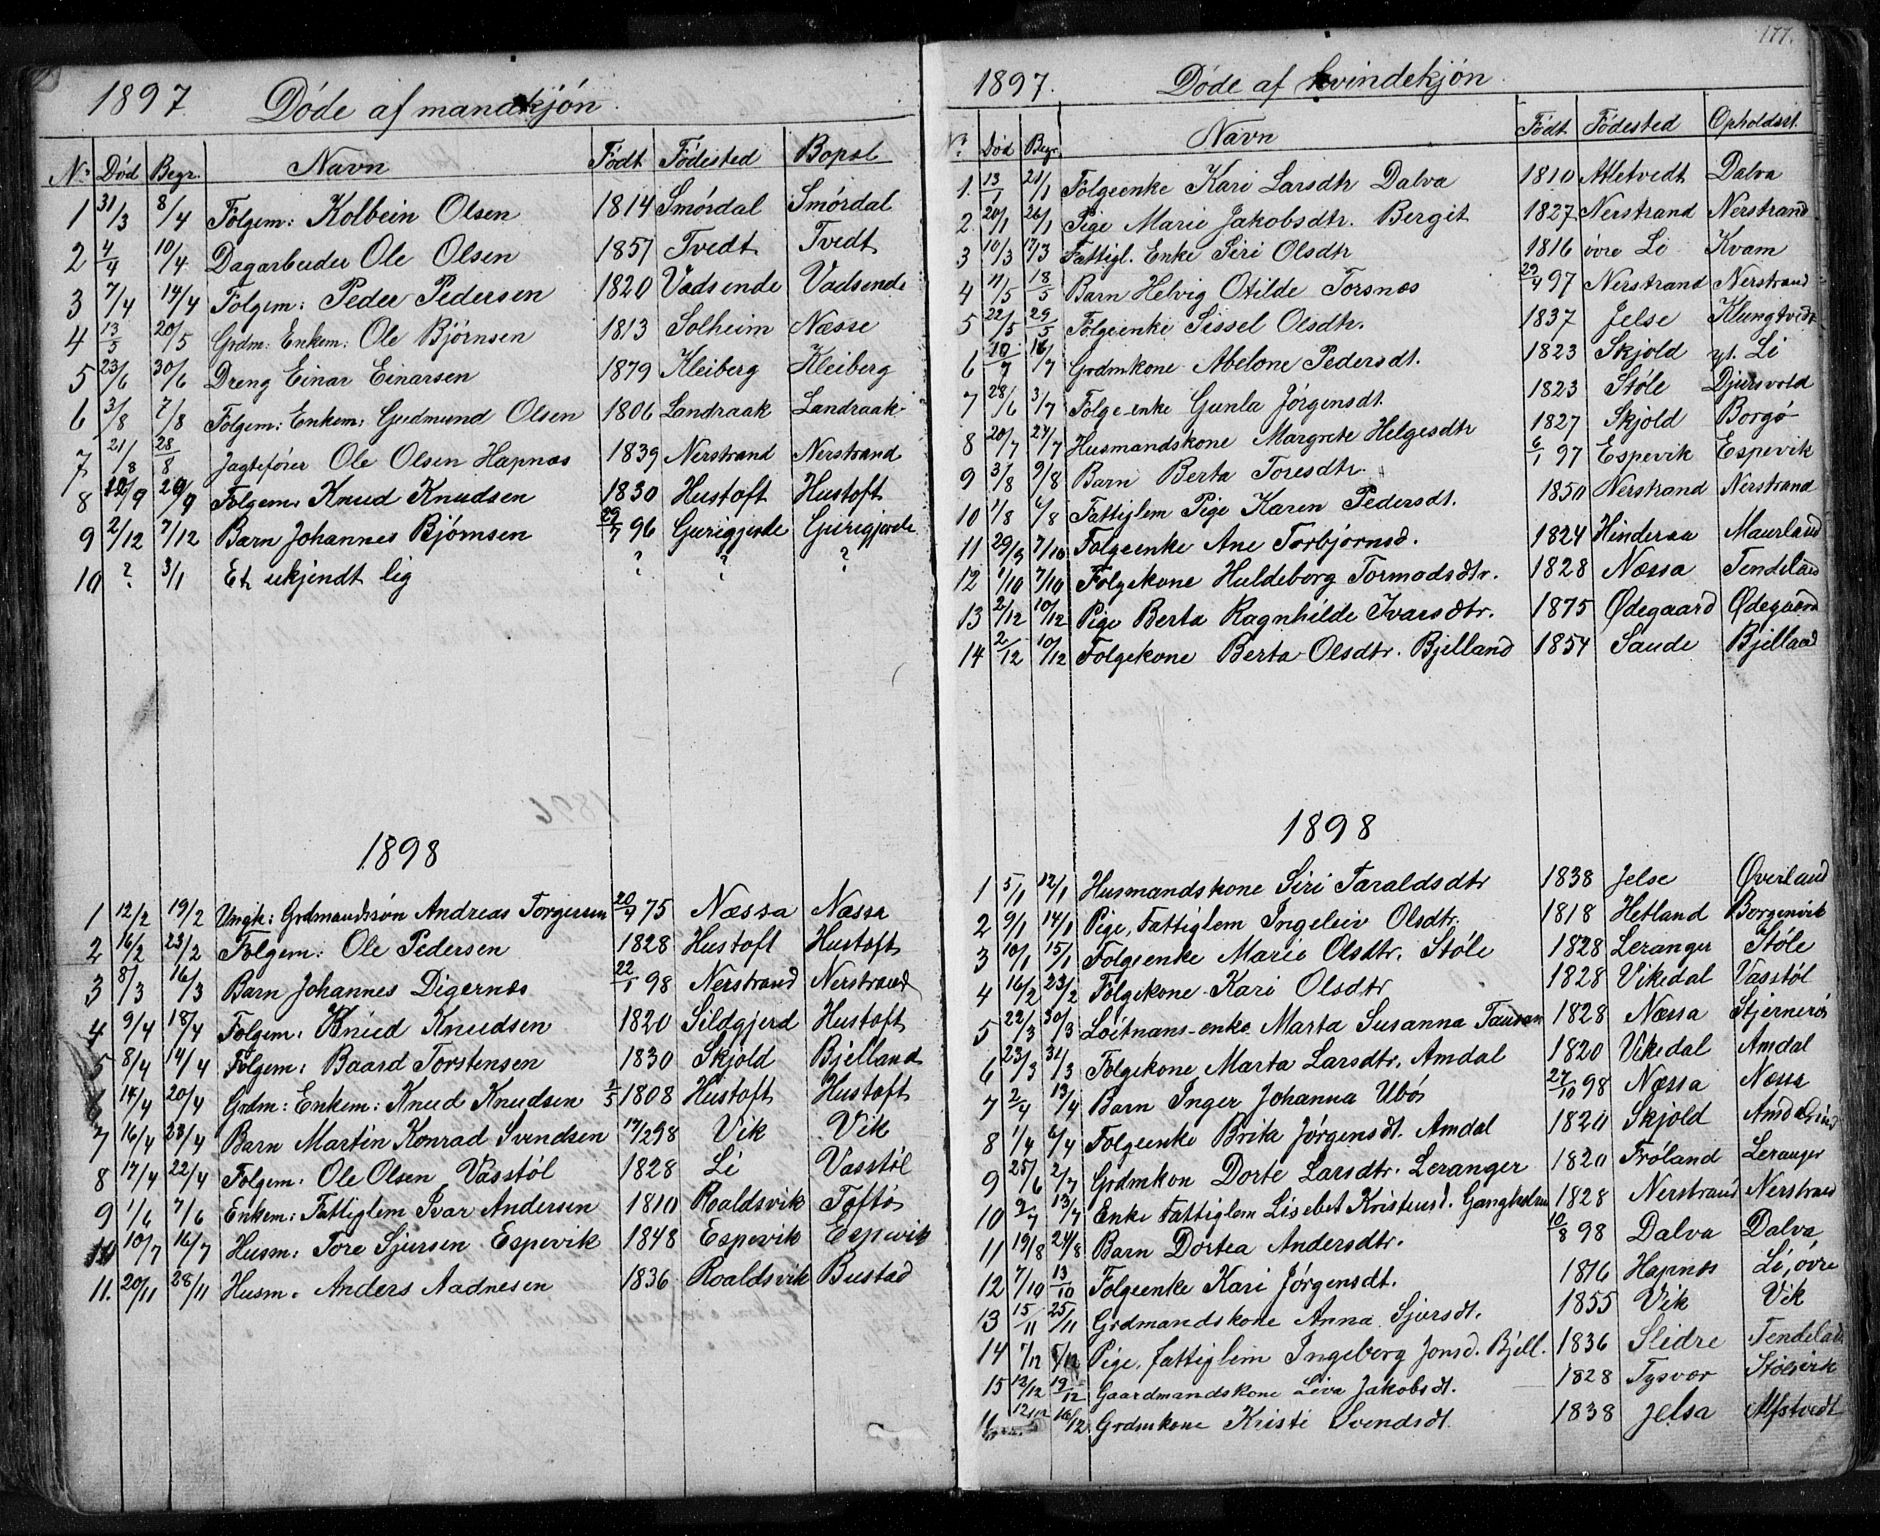 1897 Døde af mandkjøn.
No Død Begr. Navn Født Fødested Bopæl
1 31/3 8/4 Følgem: Kolbein Olsen 1814 Smørdal Smørdal
2 4/4 10/4 Dagarbeider Ole Olsen 1851 Tvedt Tvedt
3 7/4 14/4 Følgem: Peder Pedersen 1820 Vadsende Vadsende
4 13/5 20/5 Grdm: Enkem: Ole Bjørnsen 1813 Solheim Næsse
5 23/6 30/6 Dreng Einar Einarsen 1879 Kleiberg Kleiberg
6 3/8 7/8 Følgem: Enkem: Gudmund Olsen 1806 Landraak Landraak
7 21/8 28/8 Jagtefører Ole Olsen Hapnæs 1839 Nerstrand Nerstrand
8 /9 20/9 Følgem. Knud Knudsen 1830 Hustoft Hustoft
9 2/12 7/12 Barn Johannes Bjørnsen 29/7 96 Gurigjerde Gurigjerde
10 ? 3/1 Et ukjendt lig ? ? ?
1898
1 12/2 19/2 Ungk: Grdmandssøn Andreas Torgersen 20/7 75 Næssa Næssa
2 16/2 23/2 Følgem: Ole Pedersen 1828 Hustoft Hustoft
3 8/3 16/3 Barn Johannes Digernæs 22/1 98 Nerstrand Nerstrand
4 9/4 18/4 Følgem: Knud Knudsen 1820 Sildgjerd Hustoft
5 8/4 14/4 Følgem: Baard Torstensen 1830 Skjold Bjelland
6 14/4 20/4 Grdm: Enkem: Knud Knudsen 2/5 1808 Hustoft Hustoft
7 16/4 23/4 Barn Martin Konrad Svendsen 17/2 98 Vik Vik
8 17/4 22/4 Følgem: Ole Olsen Vasstøl 1828 Li Vasstøl
9 1/6 7/6 Enkem: Fattiglem Ivar Andersen 1810 Roaldsvik Toftø
10 10/7 16/7 Husm: Tore Sjursen Espevik 1848 Espevik Espevik
11. 20/11 28/11 Husm. Anders Aadnesen 1836 Roaldsvik Bustad
177.
1897. Døde af kvindekjøn.
No Død Begr. Navn Født Fødested Opholdsst.
1. 13/1 21/1 Følgeenke Kari Larsdtr Dalva 1810 Atletvedt Dalva
2 20/1 26/1 Pige Marie Jakobsdtr. Bergit 1827 Nerstrand Nerstrand
3 10/3 17/3 Fattigl. Enke Siri Olsdtr 1816 øvre Li Kvam
4 11/5 18/5 Barn Helvig Otilde Torsnæs 29/4 97 Nerstrand Nerstrand
5 22/5 29/5 Følgeenke Sissel Olsdtr. 1837 Jelse Klungtvedt
6 10/7 16/7 Grdmkone Abelone Pedersdt. 1823 Skjold yt. Li
7 28/6 3/7 Følge-enke Gunla Jørgensdt 1823 Støle Djursvold
8 20/7 24/7 Husmandskone Margrete Helgesdtr 1827 Skjold Borgø
9 3/8 9/8 Barn Berta Toresdtr. 6/1 97 Espevik Espevik
10 1/8 6/8 Fattiglem Pige Karen Pedersdt. 1850 Nerstrand Nerstrand
11 29/9 7/10 Følgeenke Ane Torbjørnsd. 1824 Hinderaa Maurland
12 1/10 7/10 Følgekone Huldeborg Tormodsdtr. 1828 Næssa Tendeland
13 2/12 10/12 Pige Berta Ragnhilde Ivarsdtr. 1875 Ødegaard Ødegaard
14 2/12 10/12 Følgekone Berta Olsdtr. Bjelland 1854 Saude Bjelland
1898
1 5/1 12/1 Husmandskone Siri Taraldsdtr 1838 Jelse Øverland
2 9/1 14/1 Pige, Fattiglem Ingeleiv Olsdtr. 1818 Hetland Borgenvik
3 10/1 15/1 Følgeenke Marie Olsdtr. Støle 1828 Leranger Støle
4 16/2 23/2 Følgekone Kari Olsdtr 1828 Vikedal Vasstøl
5 22/3 30/3 Løitnans-enke Marta Susanna Tausan 1828 Næssa Stjernerøi
6 23/3 31/3 Følgekone Marta Larsdtr. Amdal 1820 Vikedal Amdal
7 2/4 13/4 Barn Inger Johanna Ubø 27/10 98 Næssa Næssa
8 1/4 6/4 Følgeenke Brita Jørgensdt. Amdal 1820 Skjold Amdal
9 25/6 2/7 Grdmkon Dorte Larsdtr. Leranger 1820 Frøland Leranger
10 2/7 13/7 Enke Fattiglem Lisebet Kristensd. 1828 Nerstrand Nerstrand
11 19/8 24/8 Barn Dortea Andersdtr. 10/8 98 Dalva Dalva
12 7/10 13/10 Følgeenke Kari Jørgensdt. 1816 Hapnæs Li, øvre
13 15/11 25/11 Grdmandskone Anna Sjursdt. 1855 Vik Vik
14 7/12 /12 Pige, fattiglem Ingeberg Jonsd. Bjell. 1836 Slidre Tendelad
15 12/12 19/12 Gaardmandskone Liva Jakobsdt. 1828 Tysvær Stølsvik
16 12/12 16/12 Grdmkone Kristi Svendsdt 1838 Jelsa Alfstvedt